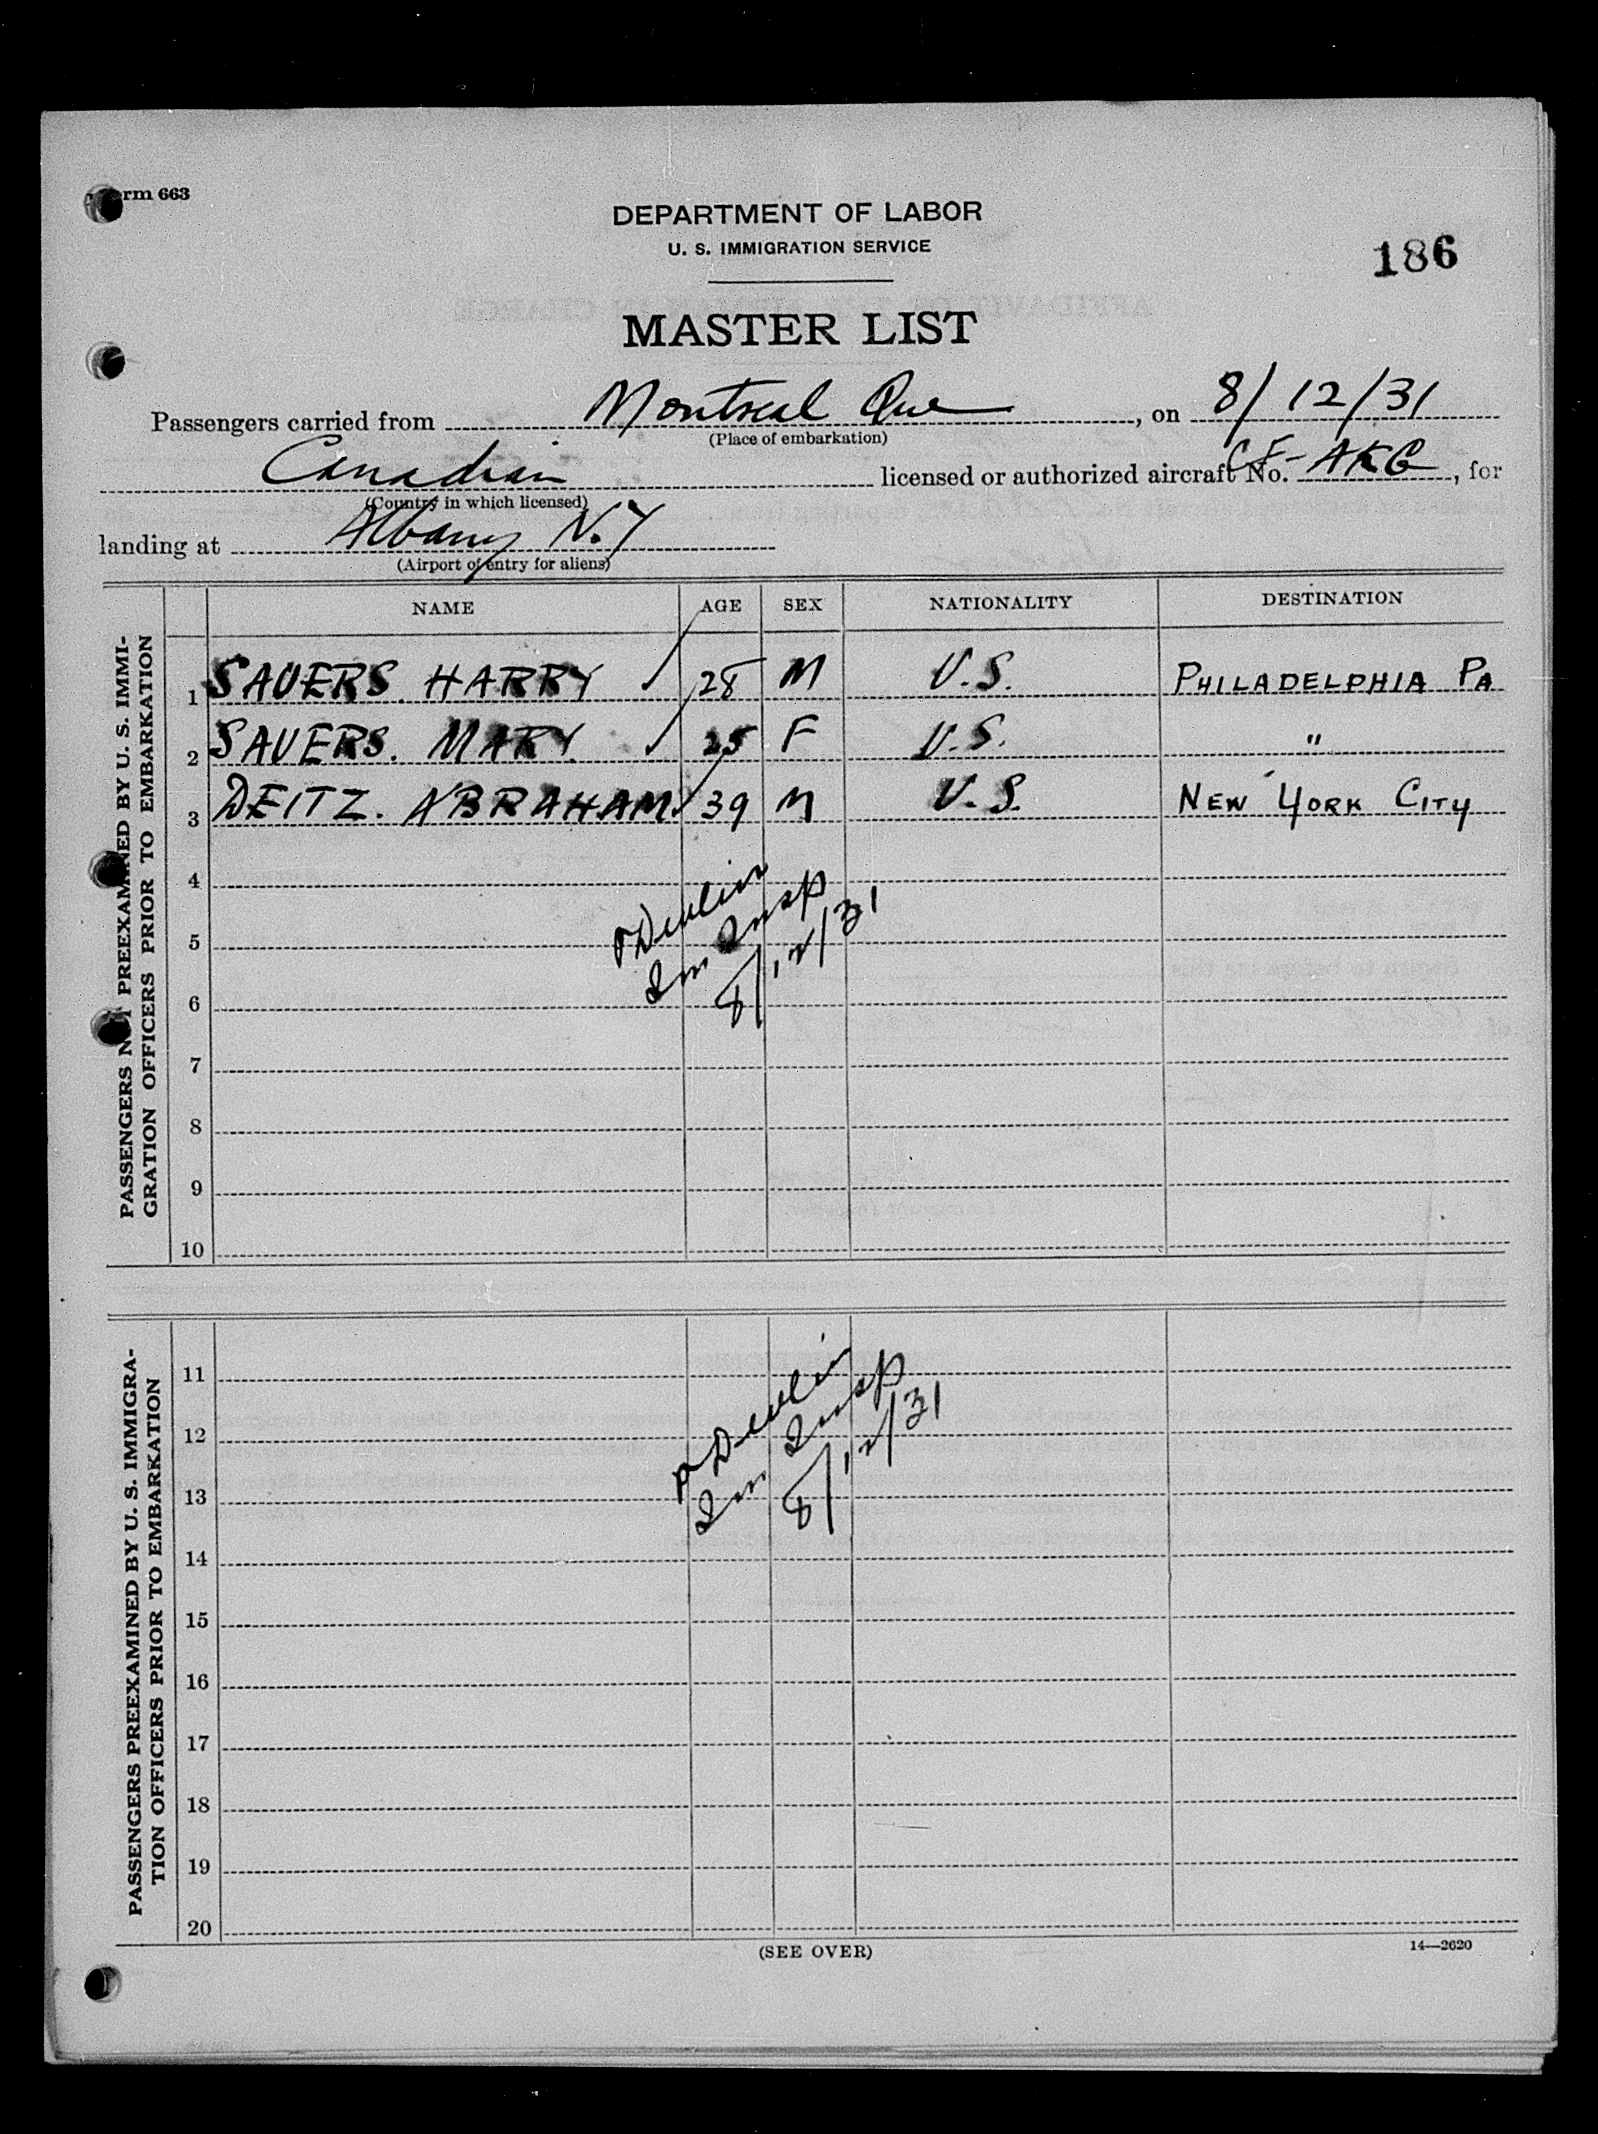 rm 663
DEPARTMENT OF LABOR
U. S. IMMIGRATION SERVICE
186
MASTER LIST
Passengers carried from Montreal Que, on 8/12/31
(Place of embarkation)
Canadian licensed or authorized aircraft No. CF-AKG, for
(Country in which licensed)
landing at Albany N.Y
(Airport of entry for aliens)
NAME AGE SEX NATIONALITY DESTINATION
PASSENGERS NOT PREEXAMINED BY U. S. IMMI-
GRATION OFFICERS PRIOR TO EMBARKATION
1 SAUERS. HARRY ✓ 28 M U.S. PHILADELPHIA PA
2 SAUERS. MARY. ✓ 25 F U.S. "
3 DEITZ. ABRAHAM. ✓ 39 M U.S. NEW YORK CITY
4
5
6
7
8
9
10
Devlin
Im Insp
8/12/31
PASSENGERS PREEXAMINED BY U. S. IMMIGRA-
TION OFFICERS PRIOR TO EMBARKATION
11
12
13
14
15
16
17
18
19
20
Devlin
Im Insp
8/12/31
(SEE OVER)
14—2620